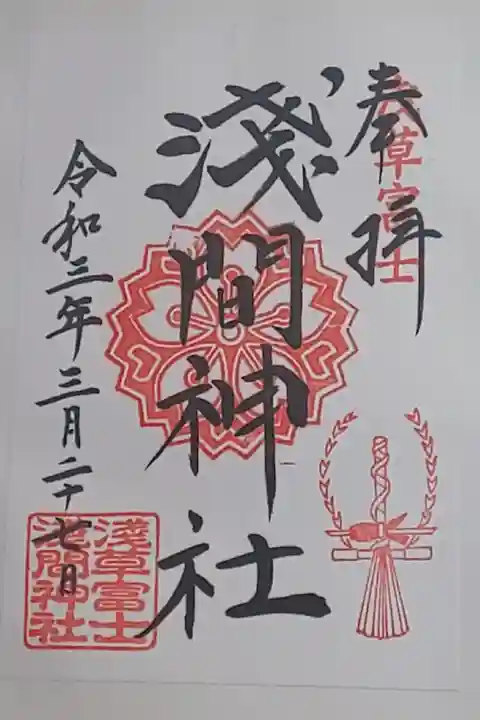 奉拝
浅草富士
淺間神社
令和三年三月二十七日
淺草富士
浅間神社